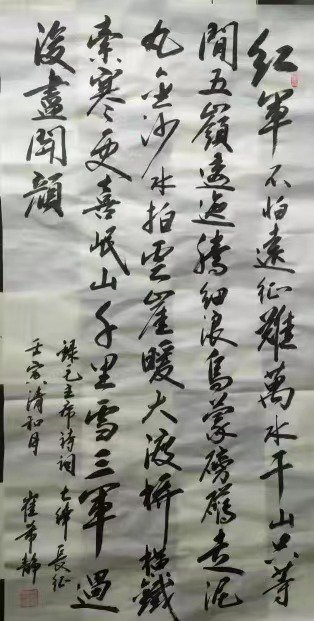 红军不怕远征难萬水千山只等
閒五嶺逶迤腾细浪烏蒙磅礴走泥
丸金沙水拍雲崖暖大渡桥横鐵
索寒更喜岷山千里雪三軍過
後盡開顔
錄毛主席詩詞七律長征
壬寅清和月 崔希静